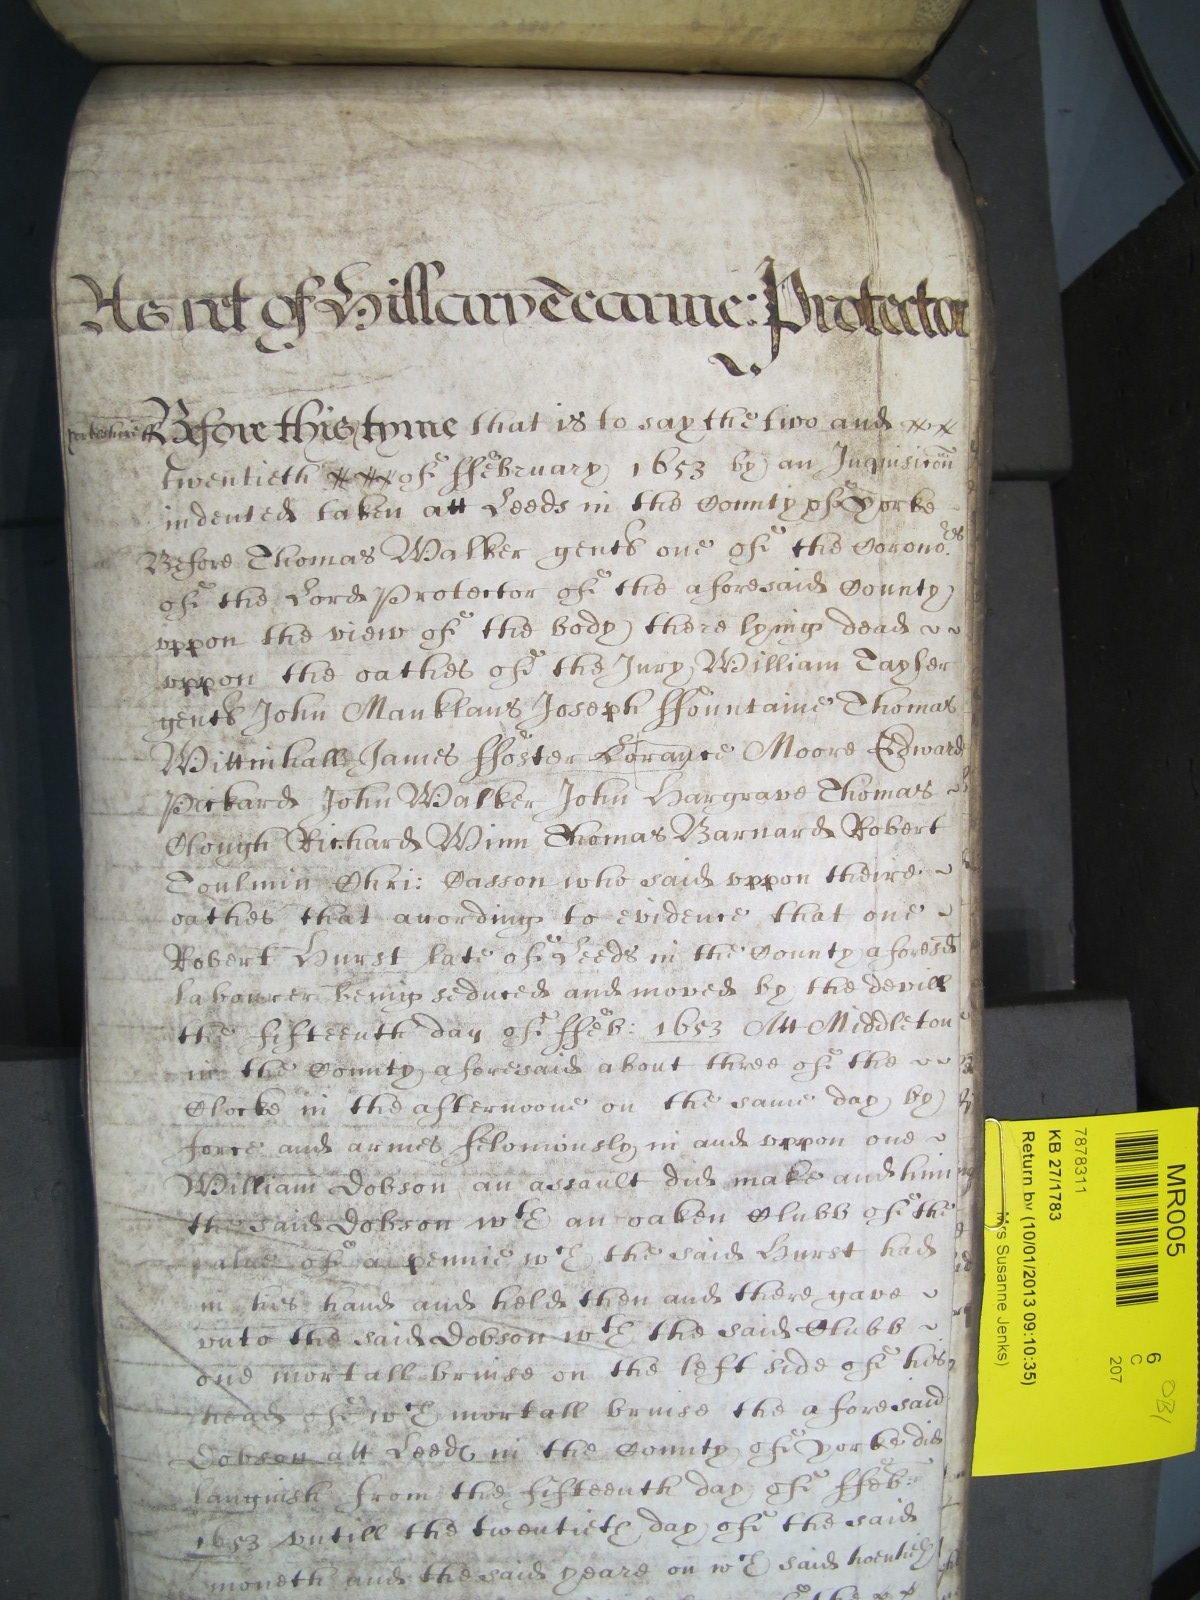 As yet of Hillary Tearme: Protector
Yorkeshire ss Before this tyme that is to say the two and xx
twentieth xxx of ffebruary 1653 by an Inquisicon
indented taken att Leeds in the County of Yorke
Before Thomas Walker gent one of the Corono:rs
of the Lord Protector of the aforesaid County
vppon the view of the body there lying dead
vppon the oathes of the Jury William Tayler
gent John Manklaus Joseph ffountaine Thomas
Wittnhall James ffoster Lorance Moore Edward
Pickard John Walker John Hargrave Thomas
Clough Richard Winn Thomas Barnard Robert
Toulmin Chri: Casson who said vppon theire
oathes that acording to evidence that one
Robert Hurst late of Leeds in the County aforesd
labourer being seduced and moved by the devill
the fifteenth day of ffeb: 1653 Att Middleton
in the County aforesaid about three of the
Clocke in the afternoone on the same day by
force and armes feloniously in and vppon one
William Dobson an assault did make and him
the said Dobson wth an oaken Clubb of the
value of a pennie wch the said Hurst had
in his hand and held then and there gave
vnto the said Dobson wth the said Clubb
one mortall bruise on the left side of his
head of wch mortall bruise the aforesaid
Dobson att Leeds in the County of Yorke did
languish from the fifteenth day of ffeb:
1653 vntill the twentieth day of the said
moneth and the said yeare on wch said twentieth
MR005
7878311
KB 27/1783
Return by (10/01/2013 09:10:35)
Mrs Susanne Jenks)
6
C
207
OB1